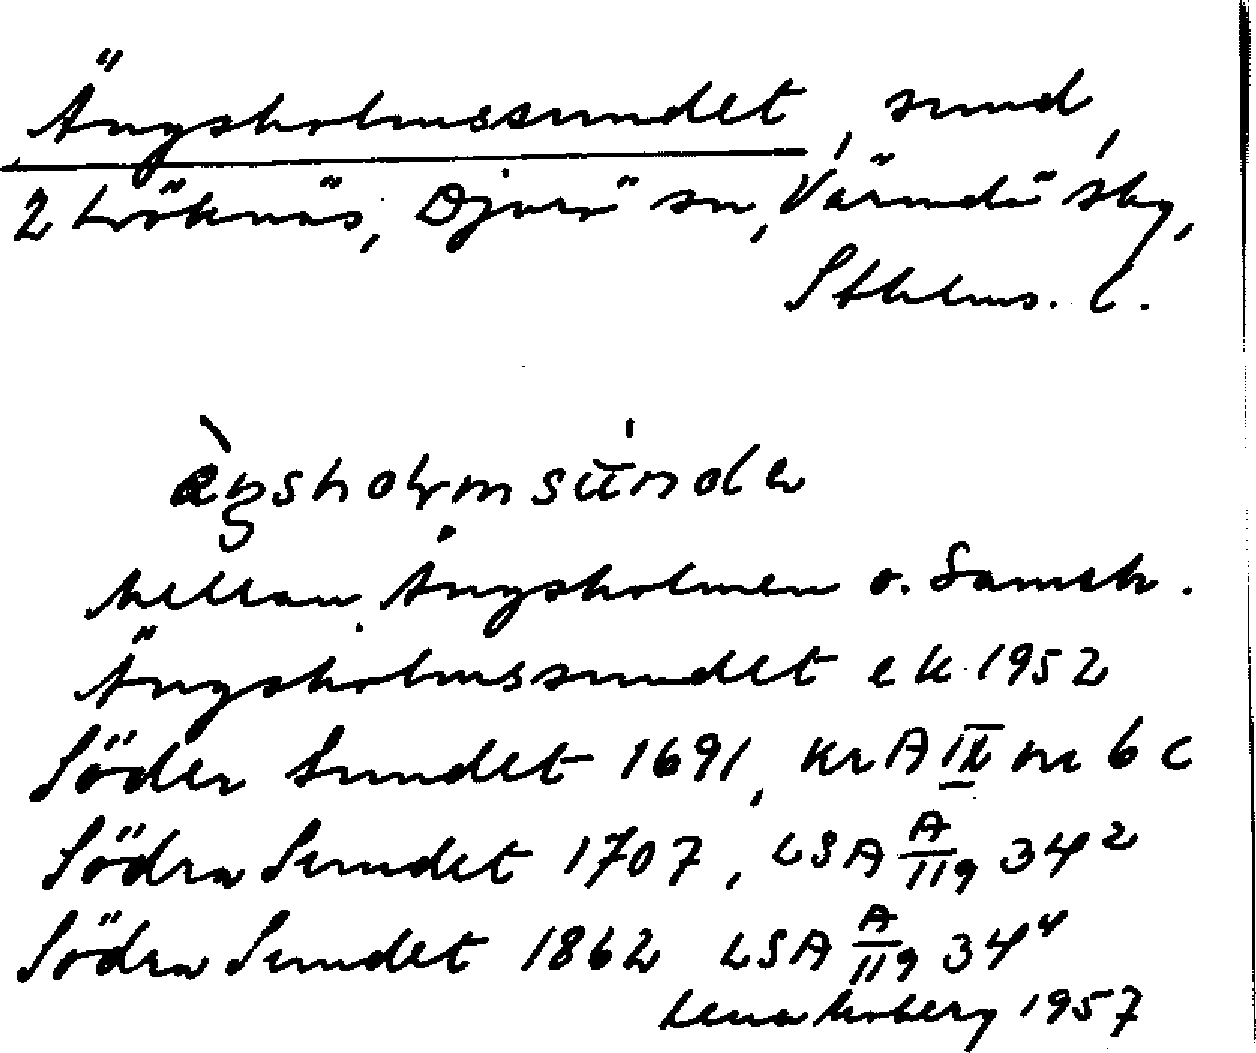 Ängsholmssundet, sund,
2 Löknäs, Djurö sn, Värmdö skg,
Sthlms. l.
ä̀ŋsholmsúndə
Mellan Ängsholmen o. Samsh.
Ängsholmssundet ek 1952
Söder Sundet 1691, KrA IX nr 6 c
Södra Sundet 1707, LSA A/119 34²
Södra Sundet 1862 LSA A/119 34⁴
Lena 1957